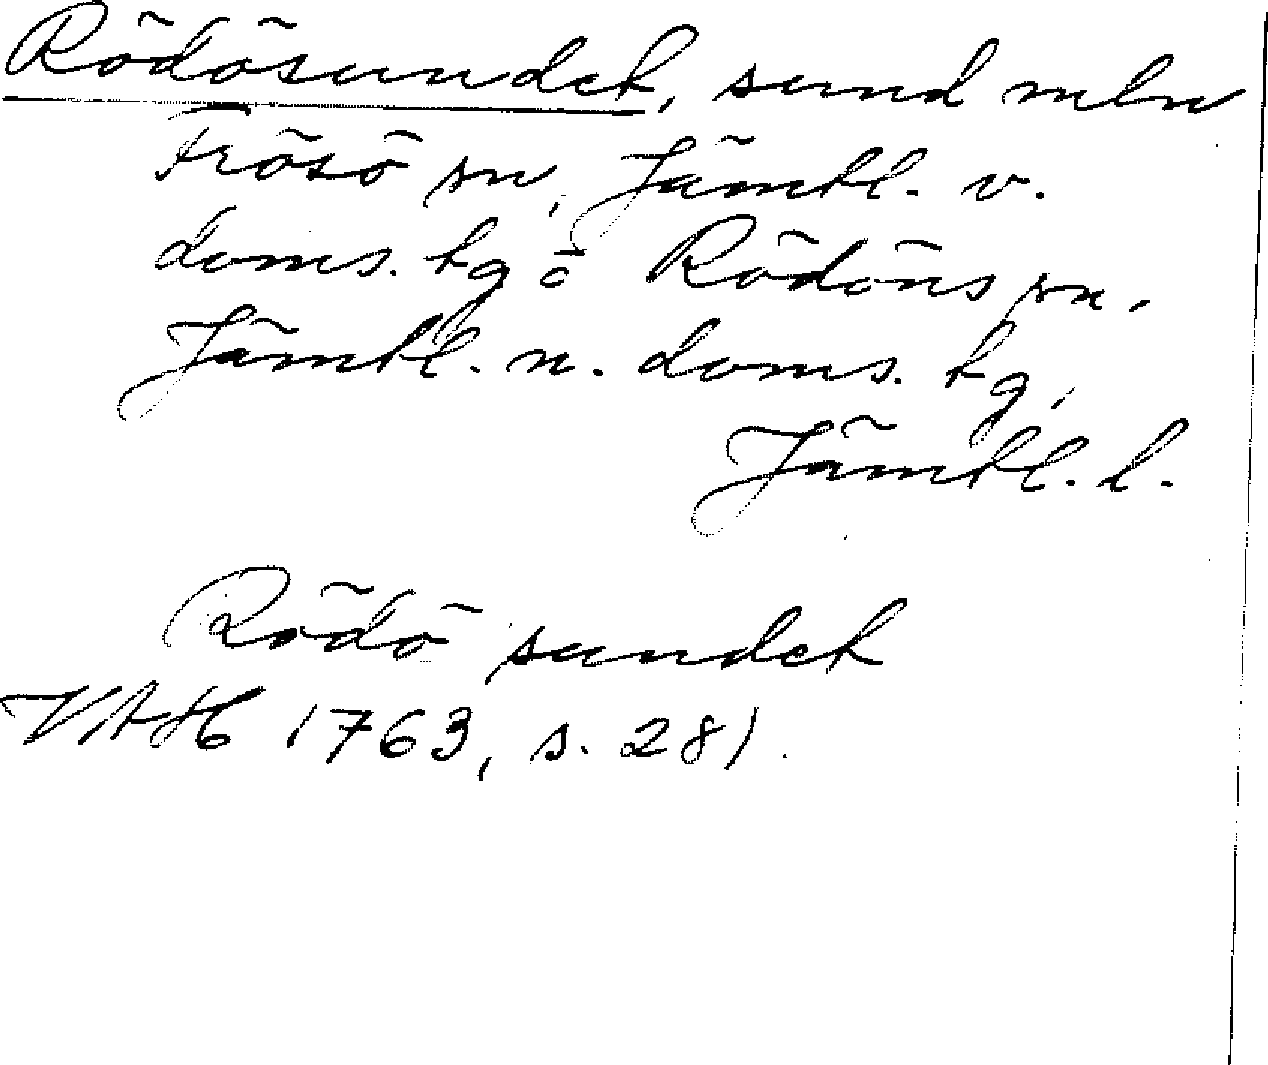 Rödösundet, sund mln
Frösö sn, Jämtl. v.
doms. hg o Rödöns sn,
Jämtl. n. doms. hg,
Jämtl. l.
Rödö sundet
VAH 1763, s. 281.